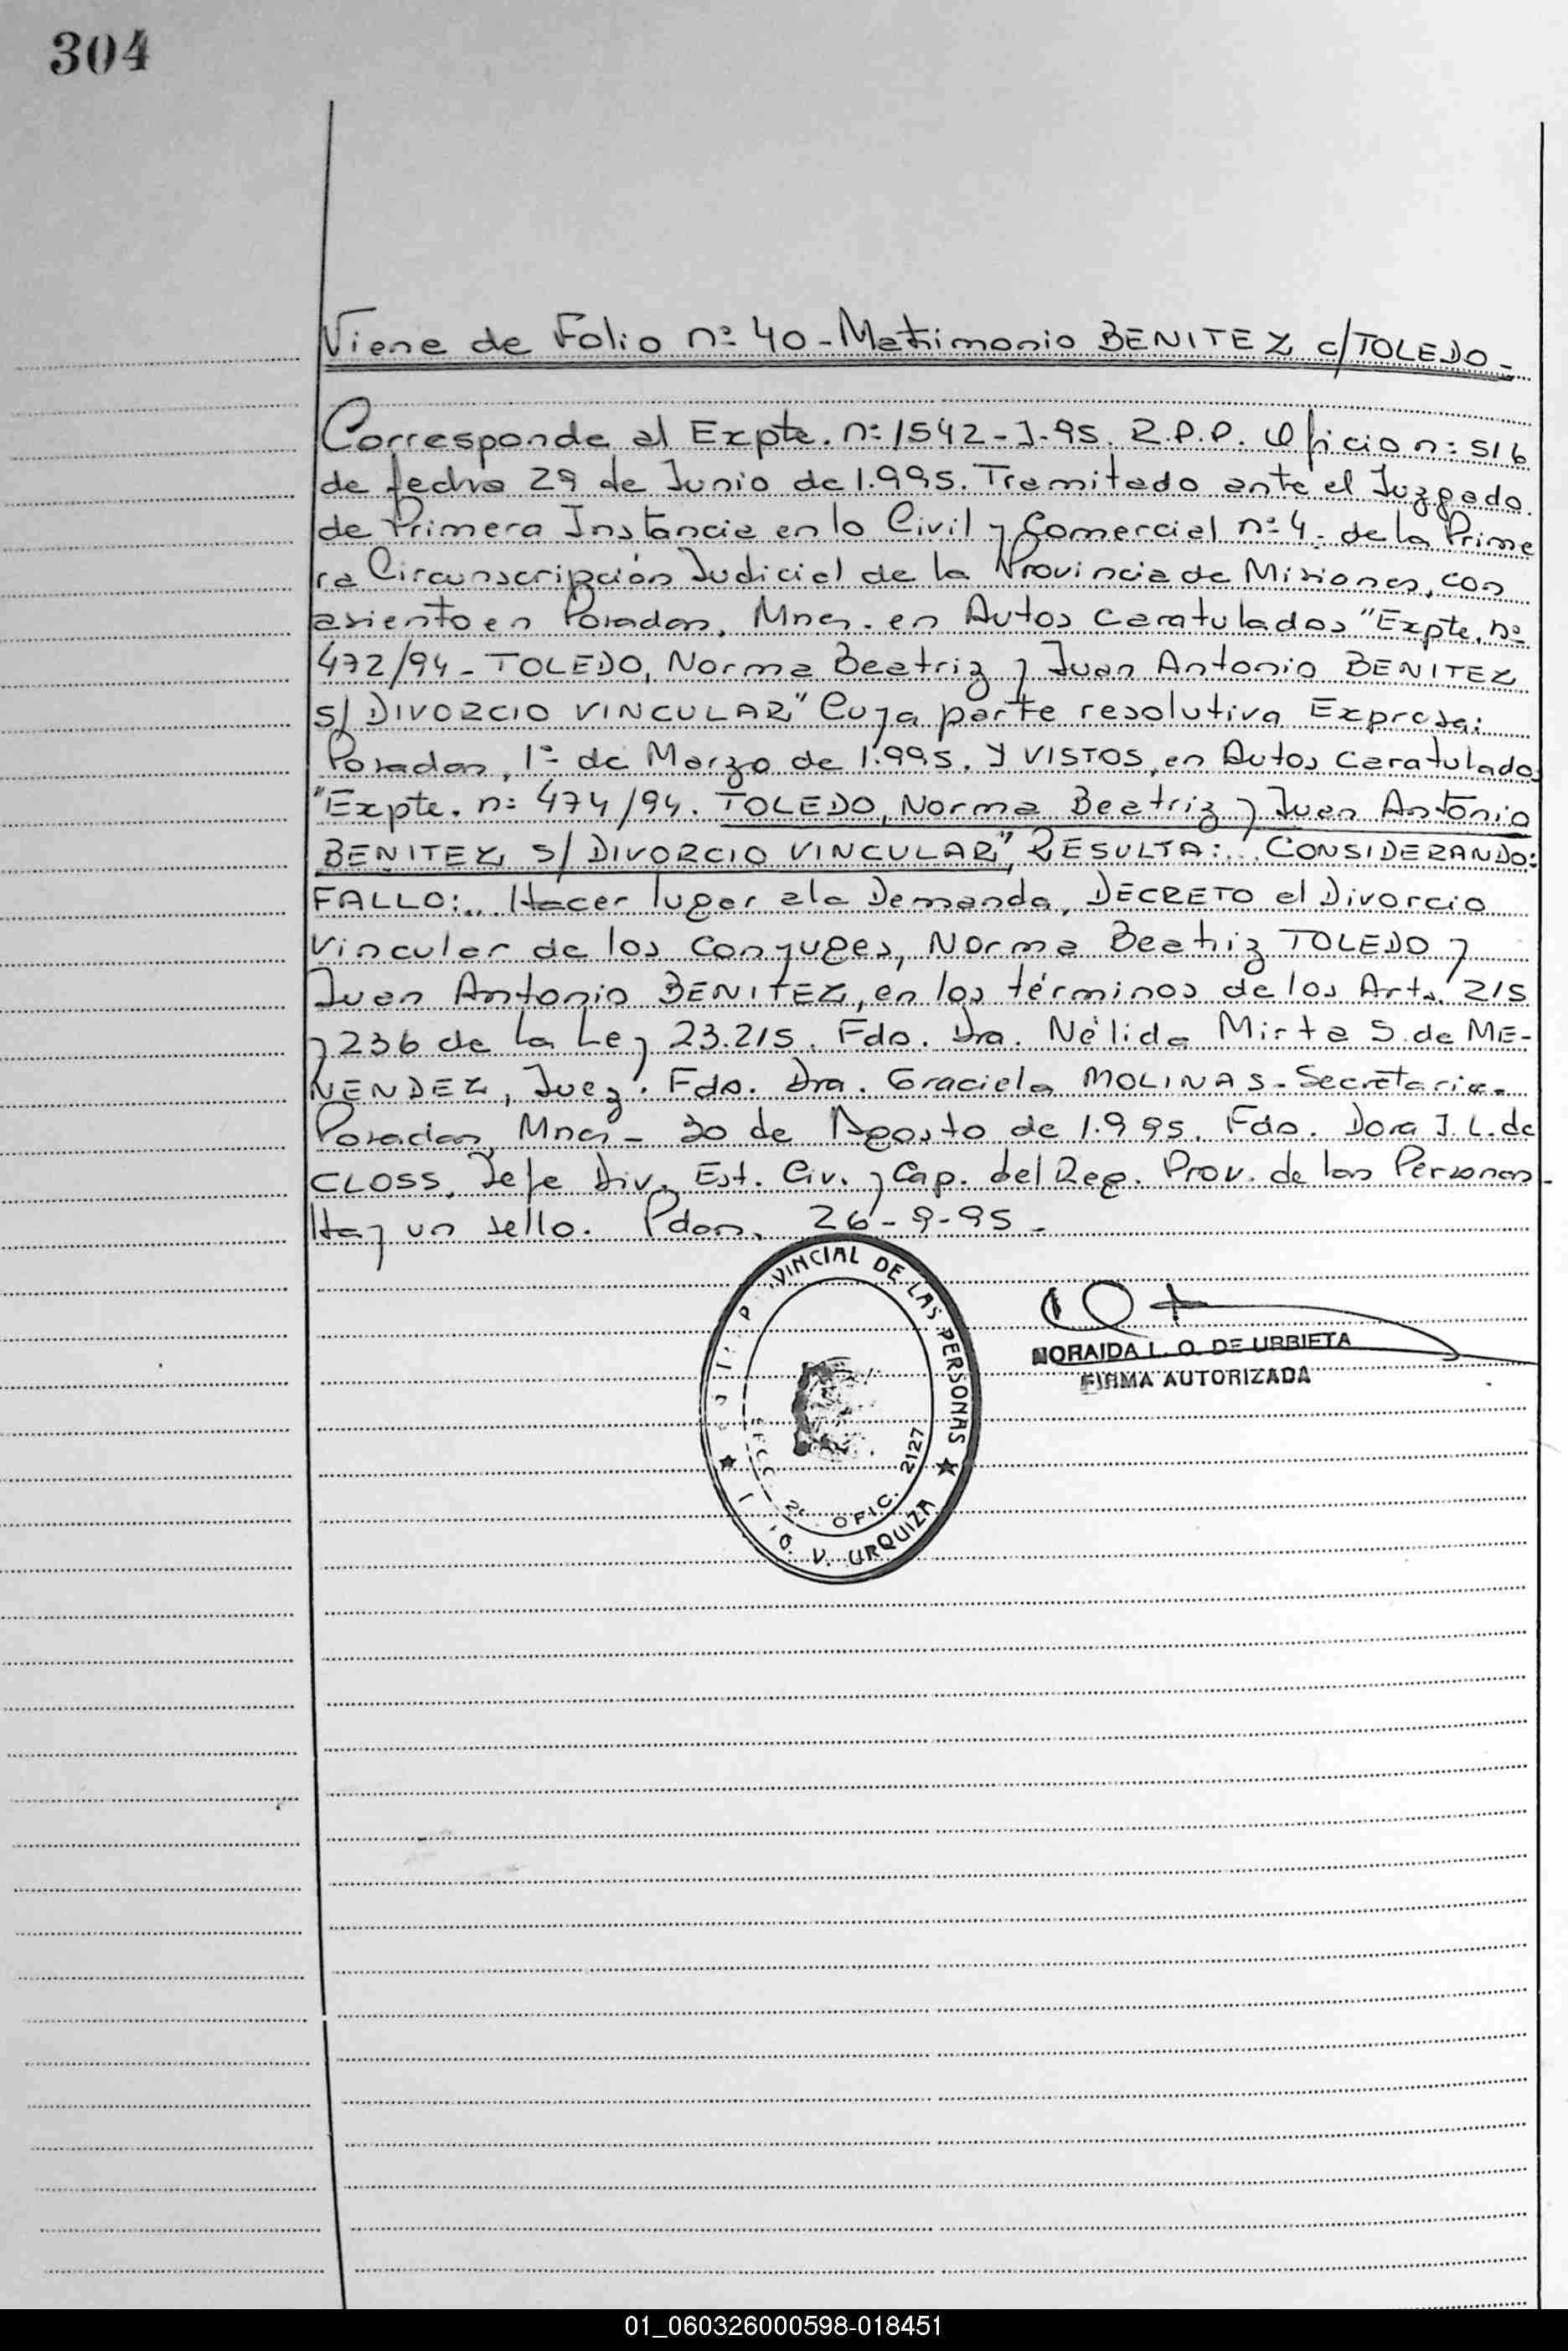 304
Viene de Folio nº 40 - Matrimonio BENITEZ c/TOLEDO -
Corresponde al Expte. nº 1542-J-95. R.P.P. Oficio nº 516
de fecha 29 de Junio de 1.995. Tramitado ante el Juzgado
de Primera Instancia en lo Civil y Comercial nº 4. de la Prime
ra Circunscripción Judicial de la Provincia de Misiones, con
asiento en Posadas, Mnes. en Autos Caratulados "Expte. nº
472/94 - TOLEDO, Norma Beatriz y Juan Antonio BENITEZ
S/ DIVORCIO VINCULAR" Cuya parte resolutiva Expresa:
Posadas, 1º de Marzo de 1.995. Y VISTOS, en Autos Caratulados
"Expte. nº 474/94. TOLEDO, Norma Beatriz y Juan Antonio
BENITEZ S/ DIVORCIO VINCULAR", RESULTA:... CONSIDERANDO:
FALLO:... Hacer lugar a la Demanda, DECRETO el Divorcio
Vincular de los Conyuges, Norma Beatriz TOLEDO y
Juan Antonio BENITEZ, en los términos de los Arts. 215
y 236 de la Ley 23.215. Fdo. Dra. Nélida Mirta S. de ME-
NENDEZ, Juez. Fdo. Dra. Graciela MOLINAS - Secretaria.
Posadas, Mnes - 30 de Agosto de 1.995. Fdo. Dora J. L. de
CLOSS, Jefe Div. Est. Civ. y Cap. del Reg. Prov. de las Personas -
Hay un sello. Pdas, 26-9-95 -
VINCIAL DE LAS PERSONAS
OFIC. 2127
V. URQUIZA
NORAIDA L. O. DE URBIETA
FIRMA AUTORIZADA
01_060326000598-018451